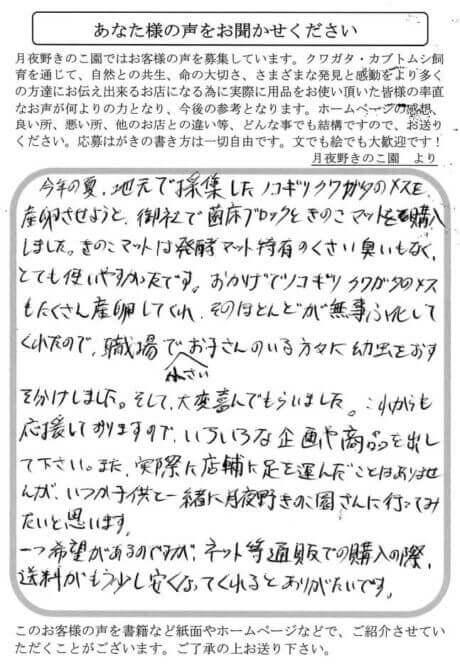 あなた様の声をお聞かせください
月夜野きのこ園ではお客様の声を募集しています。クワガタ・カブトムシ飼
育を通じて、自然との共生、命の大切さ、さまざまな発見と感動をより多く
の方達にお伝え出来るお店になる為に実際に用品をお使い頂いた皆様の率直
なお声が何よりの力となり、今後の参考となります。ホームページの感想、
良い所、悪い所、他のお店との違い等、どんな事でも結構ですので、お送り
ください。応募はがきの書き方は一切自由です。文でも絵でも大歓迎です!
月夜野きのこ園 より
今年の夏、地元で採集したノコギリクワガタのメスを、
産卵させようと、御社で菌床ブロックときのこマットを購入
しました。きのこマットは発酵マット特有のくさい臭いもなく、
とても使いやすかたです。おかげでノコギリクワガタのメス
もたくさん産卵してくれ、そのほとんどが無事ふ化して
くれたので、職場で小さいお子さんのいる方々に幼虫をおす
そ分けしました。そして、大変喜んでもらいました。これからも
応援しておりますので、いろいろな企画や商品を出し
て下さい。また、実際に店舗に足を運んだことはありませ
んが、いつか子供と一緒に月夜野きのこ園さんに行ってみ
たいと思います。
一つ希望があるのですが、ネット等通販での購入の際、
送料がもう少し安くなってくれるとありがたいです。
このお客様の声を書籍など紙面やホームページなどで、ご紹介させていた
ただくことがございます。ご了承の上お送り下さい。